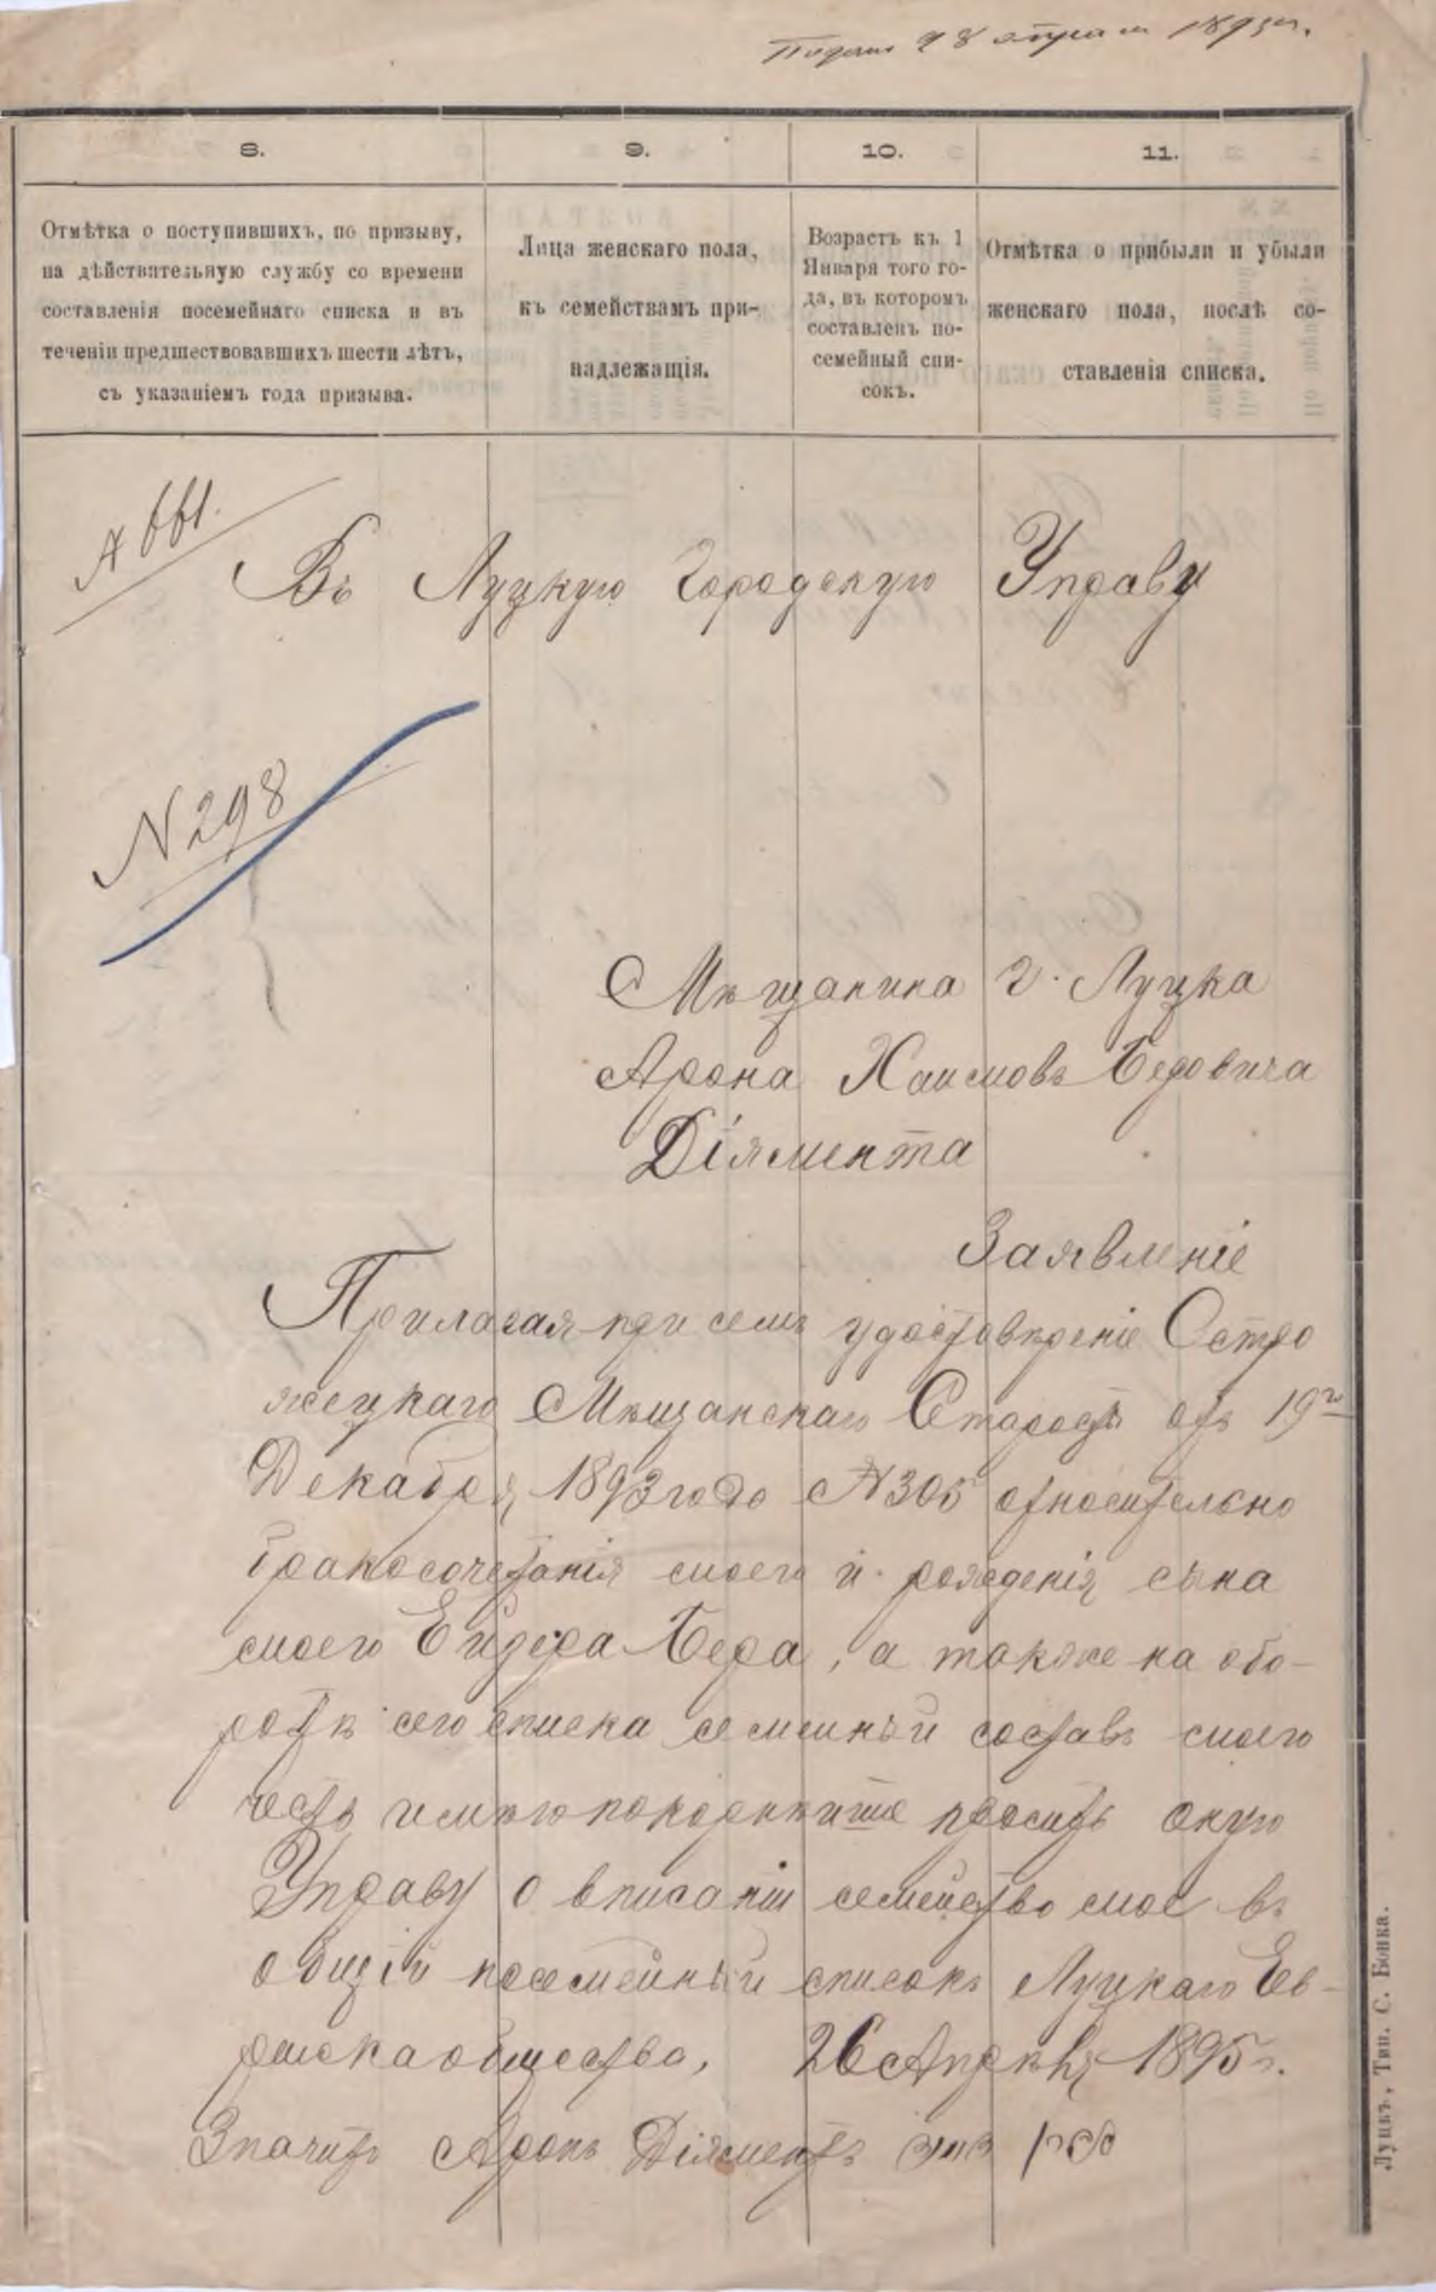 Подано 28 апреля 1895 г.
8.
9.
10.
11.
Отмѣтка о поступившихъ, по призыву,
на дѣйствительную службу со времени
составленія посемейнаго списка и въ
теченіи предшествовавшихъ шести лѣтъ,
съ указаніемъ года призыва.
Лица женскаго пола,
къ семействамъ при-
надлежащія.
Возрастъ къ 1
Января того го-
да, въ которомъ
составленъ по-
семейный спи-
сокъ.
Отмѣтка о прибыли и убыли
женскаго пола, послѣ со-
ставленія списка.
Въ Луцкую Городскую Управу
N 298
Мѣщанина г. Луцка
Арона Хаимовъ Беровича
Діямента
Заявленіе
Прилагая при семъ удостовѣреніе Остро
жецкаго Мѣщанскаго Старосты отъ 19го
Декабря 1893 года № 305 относительно
бракосочетанія моего и рожденія сына
моего Ейзера Бера, а также на обо-
ротѣ сего списка семейный составъ моего
честь имѣю покорнѣйше просить оную
Управу о вписаніи семейство мое въ
общій посемейный списокъ Луцкаго Ев-
рейска общества, 26 Апрѣля 1895 г.
Значитъ Аронъ Діяментъ
Луцкъ, Тип. С. Бонка.